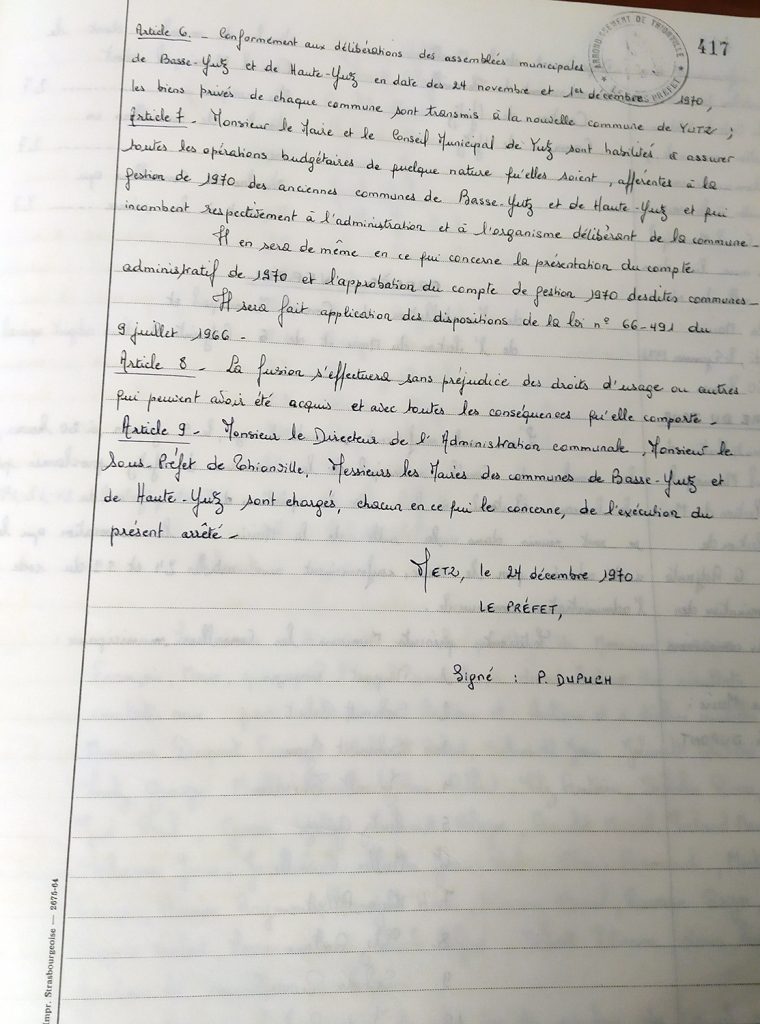 417
ARRONDISSEMENT DE THIONVILLE
PRÉFET
Article 6. - Conformément aux délibérations des assemblées municipales
de Basse-Yutz et de Haute-Yutz en date des 24 novembre et 1er décembre 1970,
les biens privés de chaque commune sont transmis à la nouvelle commune de YUTZ ;
Article 7. - Monsieur le Maire et le Conseil Municipal de Yutz sont habilités à assurer
toutes les opérations budgétaires de quelque nature qu'elles soient, afférentes à la
gestion de 1970 des anciennes communes de Basse-Yutz et de Haute-Yutz et qui
incombent respectivement à l'administration et à l'organisme délibérant de la commune -
Il en sera de même en ce qui concerne la présentation du compte
administratif de 1970 et l'approbation du compte de gestion 1970 desdites communes -
Il sera fait application des dispositions de la loi n° 66-491 du
9 juillet 1966 -
Article 8 - La fusion s'effectuera sans préjudice des droits d'usage ou autres
qui peuvent avoir été acquis et avec toutes les conséquences qu'elle comporte -
Article 9 - Monsieur le Directeur de l'Administration communale, Monsieur le
Sous-Préfet de Thionville, Messieurs les Maires des communes de Basse-Yutz et
de Haute-Yutz sont chargés, chacun en ce qui le concerne, de l'exécution du
présent arrêté -
METZ, le 24 décembre 1970
LE PRÉFET,
Signé : P. DUPUCH
Impr. Strasbourgeoise — 2675-64